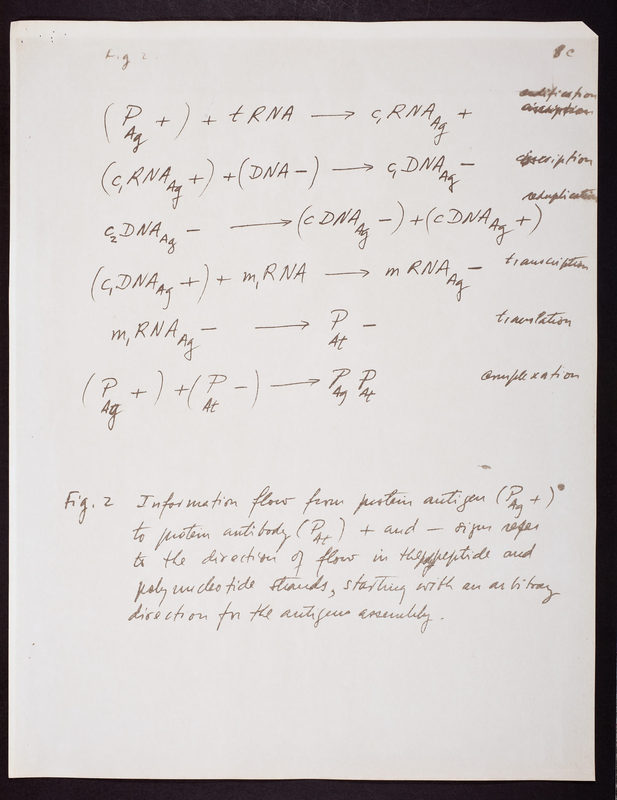 Fig 2.
8c
codification
(P Ag +) + tRNA → c₁RNA Ag +
(c₁RNA Ag +) + (DNA −) → c₁DNA Ag − inscription
reduplication
c₂DNA Ag − → (cDNA Ag −) + (cDNA Ag +)
(c₁DNA Ag +) + m₁RNA → mRNA Ag − transcription
m₁RNA Ag − → P At − translation
(P Ag +) + (P At −) → P Ag P At complexation
Fig. 2 Information flow from protein antigen (P Ag +)
to protein antibody (P At) + and − signs refer
to the direction of flow in the peptide and
polynucleotide strands, starting with an arbitray
direction for the antigens assembly.